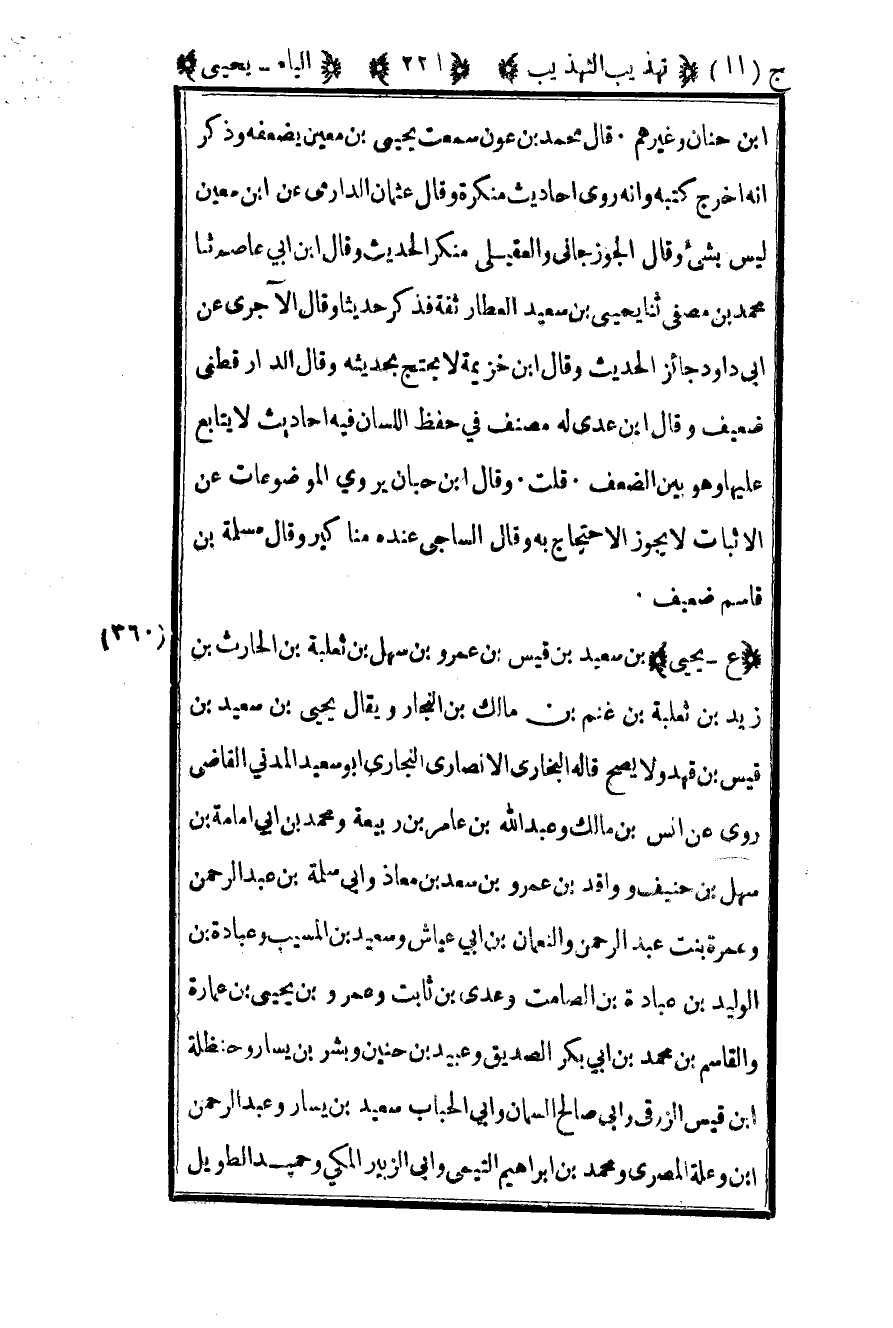 ج (١١) ﴿ تهذيب التهذيب ﴾ ﴿ ٢٢١ ﴾ ﴿ الياء - يحيى ﴾
ابن حنان وغيرهم ٠ قال محمد بن عون سمعت يحيى بن معين يضعفه وذكر
انه اخرج كتبه وانه روى احاديث منكرة وقال عثمان الدارمى عن ابن معين
ليس بشئ وقال الجوزجانى والعقيلى منكر الحديث وقال ابن ابي عاصم ثنا
محمد بن مصفى ثنا يحيى بن سعيد العطار ثقة فذكر حديثا وقال الآجرى عن
ابى داود جائز الحديث وقال ابن خزيمة لا يحتج بحديثه وقال الدار قطنى
ضعيف وقال ابن عدى له مصنف في حفظ اللسان فيه احاديث لا يتابع
عليها وهو بين الضعف ٠ قلت ٠ وقال ابن حبان يروي الموضوعات عن
الاثبات لا يجوز الاحتجاج به وقال الساجى عنده مناكير وقال مسلمة بن
قاسم ضعيف ٠
﴿ ع - يحيى ﴾ بن سعيد بن قيس بن عمرو بن سهل بن ثعلبة بن الحارث بن
(٣٦٠)
زيد بن ثعلبة بن غنم بن مالك بن النجار ويقال يحيى بن سعيد بن
قيس بن قهد ولا يصح قاله البخارى الانصارى النجاري ابو سعيد المدني القاضى
روى عن انس بن مالك وعبد الله بن عامر بن ربيعة ومحمد بن ابي امامة بن
سهل بن حنيف وواقد بن عمرو بن سعد بن معاذ وابي سلمة بن عبد الرحمن
وعمرة بنت عبد الرحمن والنعمان بن ابي عياش وسعيد بن المسيب وعبادة بن
الوليد بن عبادة بن الصامت وعدى بن ثابت وعمرو بن يحيى بن عمارة
والقاسم بن محمد بن ابي بكر الصديق وعبيد بن حنين وبشر بن يسار وحنظلة
ابن قيس الزرقى وابى صالح السمان وابي الحباب سعيد بن يسار وعبد الرحمن
ابن وعلة المصرى ومحمد بن ابراهيم التيمى وابي الزبير المكي وحميد الطويل